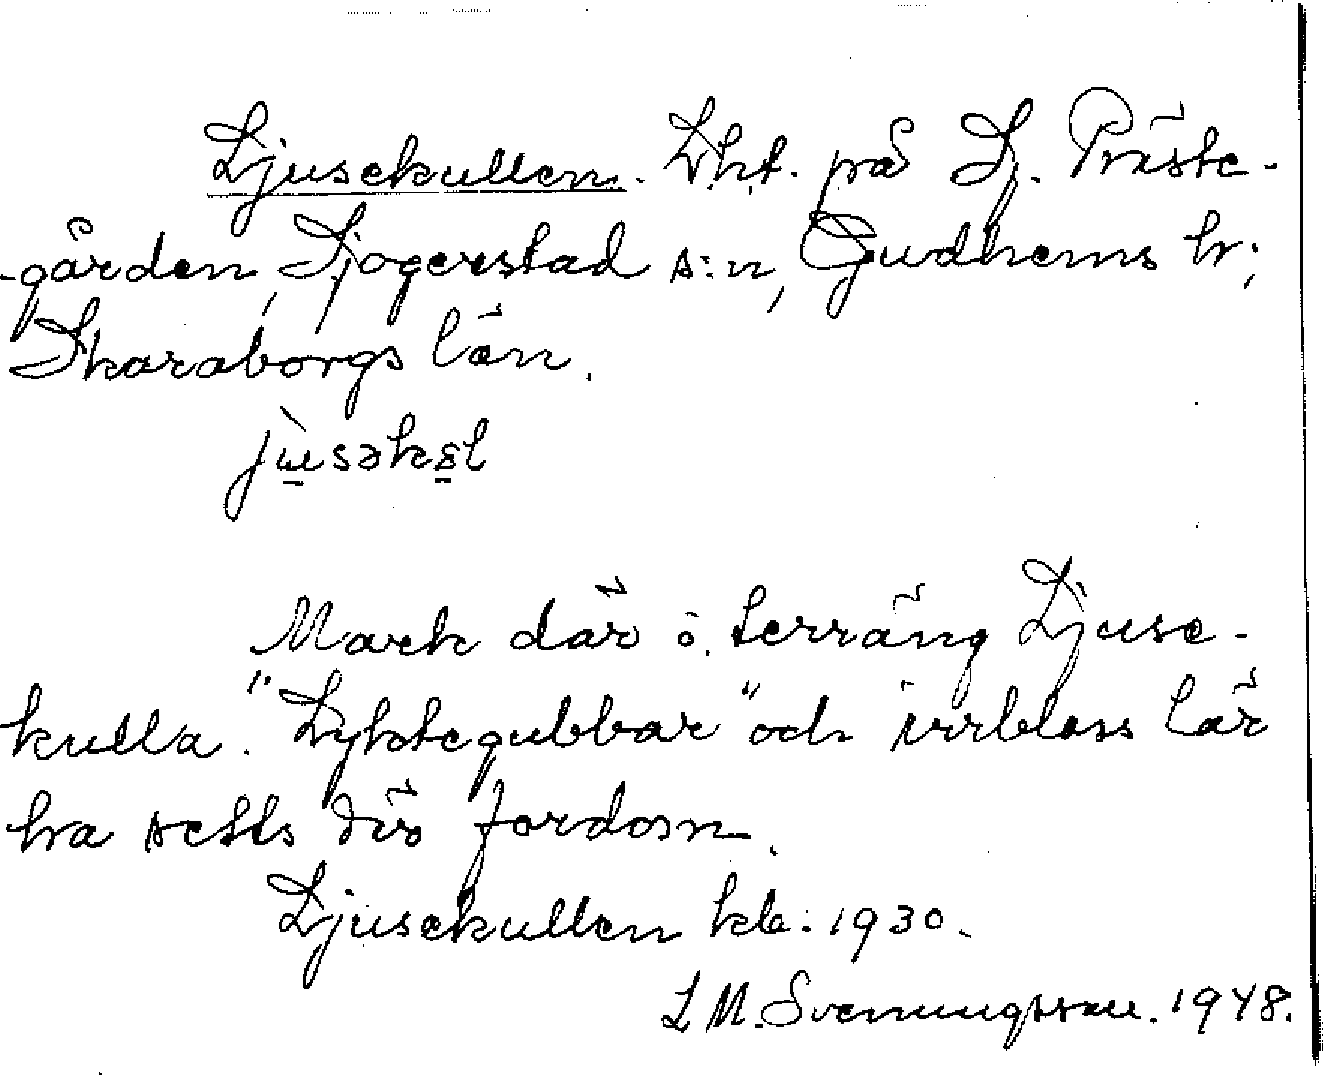 Ljusekullen. Lht. på Sj. Präste-
-gården, Sjogerstad s:n, Gudhems hr;
Skaraborgs län.
jùsəkɞl
Mark där i. terräng Ljuse-
kulla. "Lyktegubbar" och irrbloss lär
ha setts där fordom.
Ljusekullen kla: 1930.
L M. Svenungsson. 1948.